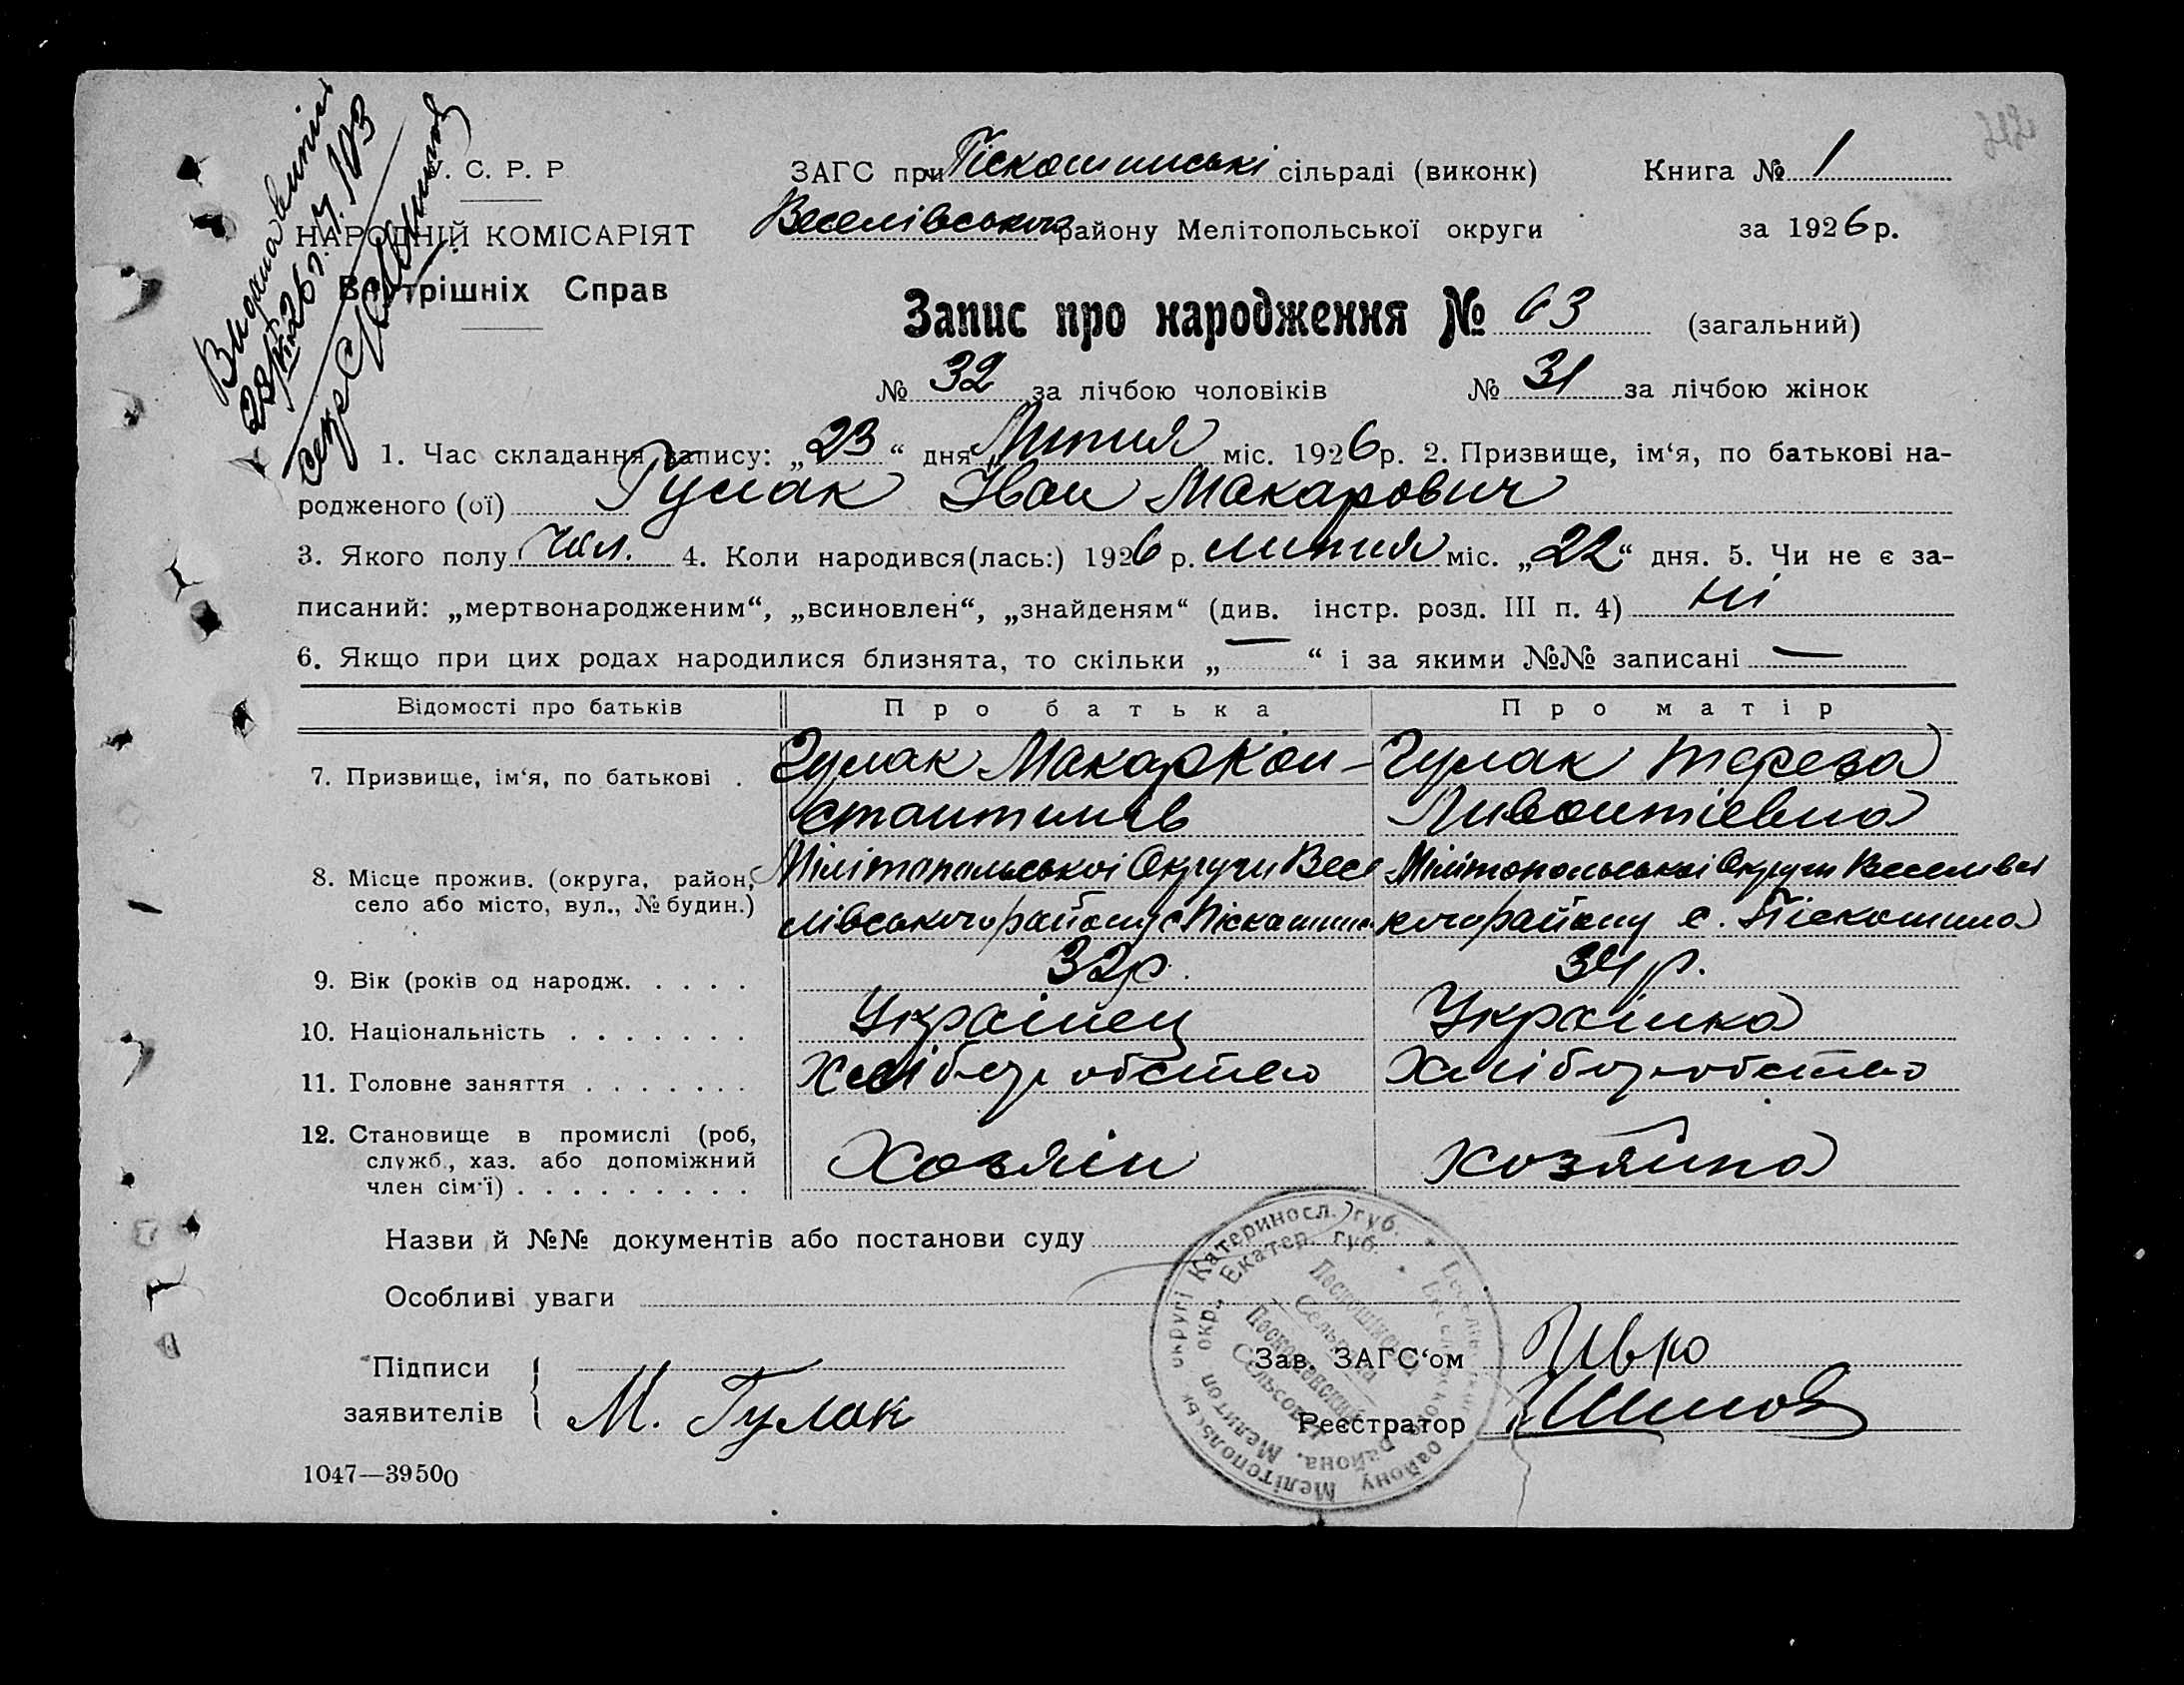 Видана виписка
28/XI 26 р. № 103
У. С. Р. Р
НАРОДНІЙ КОМІСАРІЯТ
Внутрішніх Справ
ЗАГС при Піскошинські сільраді (виконк)
Веселівського району Мелітопольської округи
Книга № 1
за 1926 р.
Запис про народження № 63 (загальний)
№ 32 за лічбою чоловіків № 31 за лічбою жінок
1. Час складання запису: „23“ дня Липня міс. 1926 р. 2. Призвище, ім‘я, по батькові на-
родженого (ої) Гулак Іван Макарович
3. Якого полу Чол. 4. Коли народився(лась:) 1926 р. липня міс. „22“ дня. 5. Чи не є за-
писаний: „мертвонародженим“, „всиновлен“, „знайденям“ (див. інстр. розд. III п. 4) Ні
6. Якщо при цих родах народилися близнята, то скільки „—“ і за якими №№ записані —
Відомості про батьків Про батька Про матір
7. Призвище, ім‘я, по батькові . Гулак Макар Кон- Гулак Тереза
стантинів Ливонтіевна
8. Місце прожив. (округа, район, Мілітопольської Округи Весе Мілітопольської Округи Веселівсь
село або місто, вул., № будин.) лівського району с Піскашина кого району с. Піскошина
9. Вік (років од народж. . . . . 32 р. 34 р.
10. Національність . . . . . . . Українец Українка
11. Головне заняття . . . . . . . Хліборобство Хліборобство
12. Становище в промислі (роб,
служб., хаз. або допоміжний Хозяін хозяйка
член сім‘ї) . . . . . . . . .
Назви й №№ документів або постанови суду
Особливі уваги
Підписи
заявителів М. Гулак
Зав. ЗАГС‘ом Івко
Реєстратор
Катериносл. губ. району Мелітопольськ округі
Екатер. губ. района. Мелитоп окр.
Сельрада
Сельсовет
1047—39500